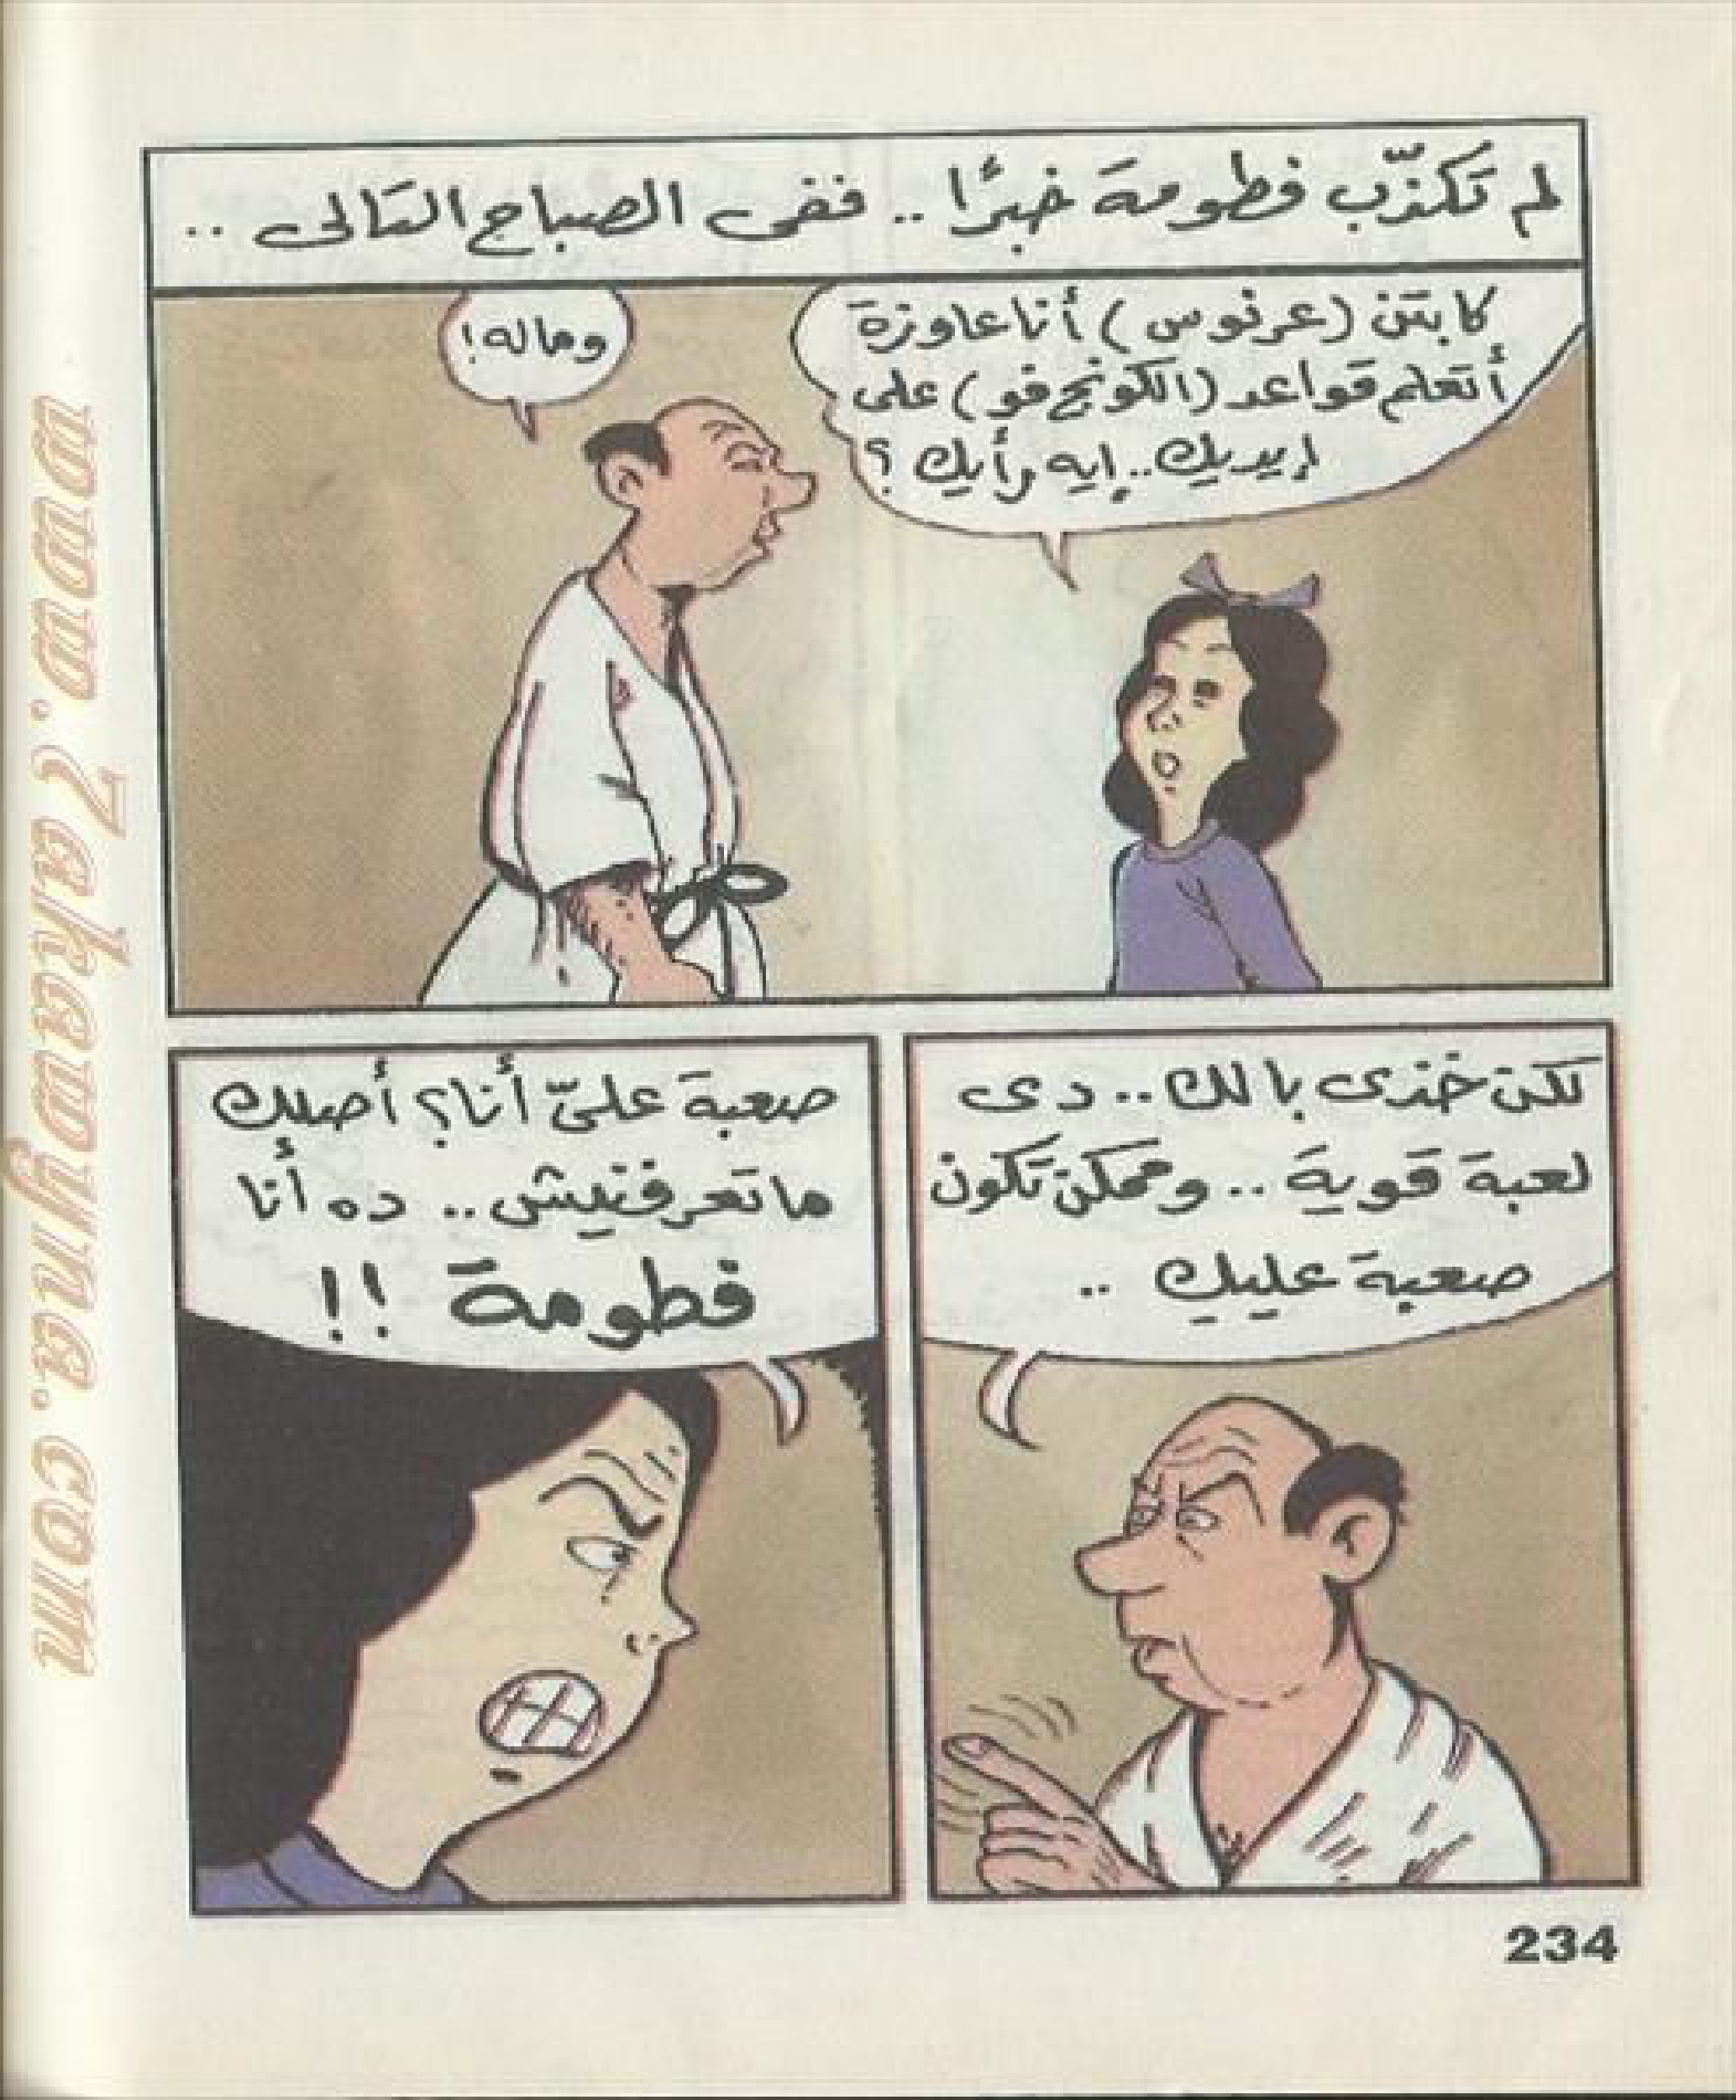 لم تكذّب فطومة خبرًا .. ففى الصباح التالى ..
كابتن (عرنوس) أنا عاوزة
أتعلم قواعد (الكونج فو) على
إيديك.. إيه رأيك ؟
وماله!
لكن خذى بالك.. دى
لعبة قوية .. وممكن تكون
صعبة عليك ..
صعبة علىّ أنا؟ أصلك
ماتعرفنيش .. ده أنا
فطومة !!
234
www.7akawyna.com